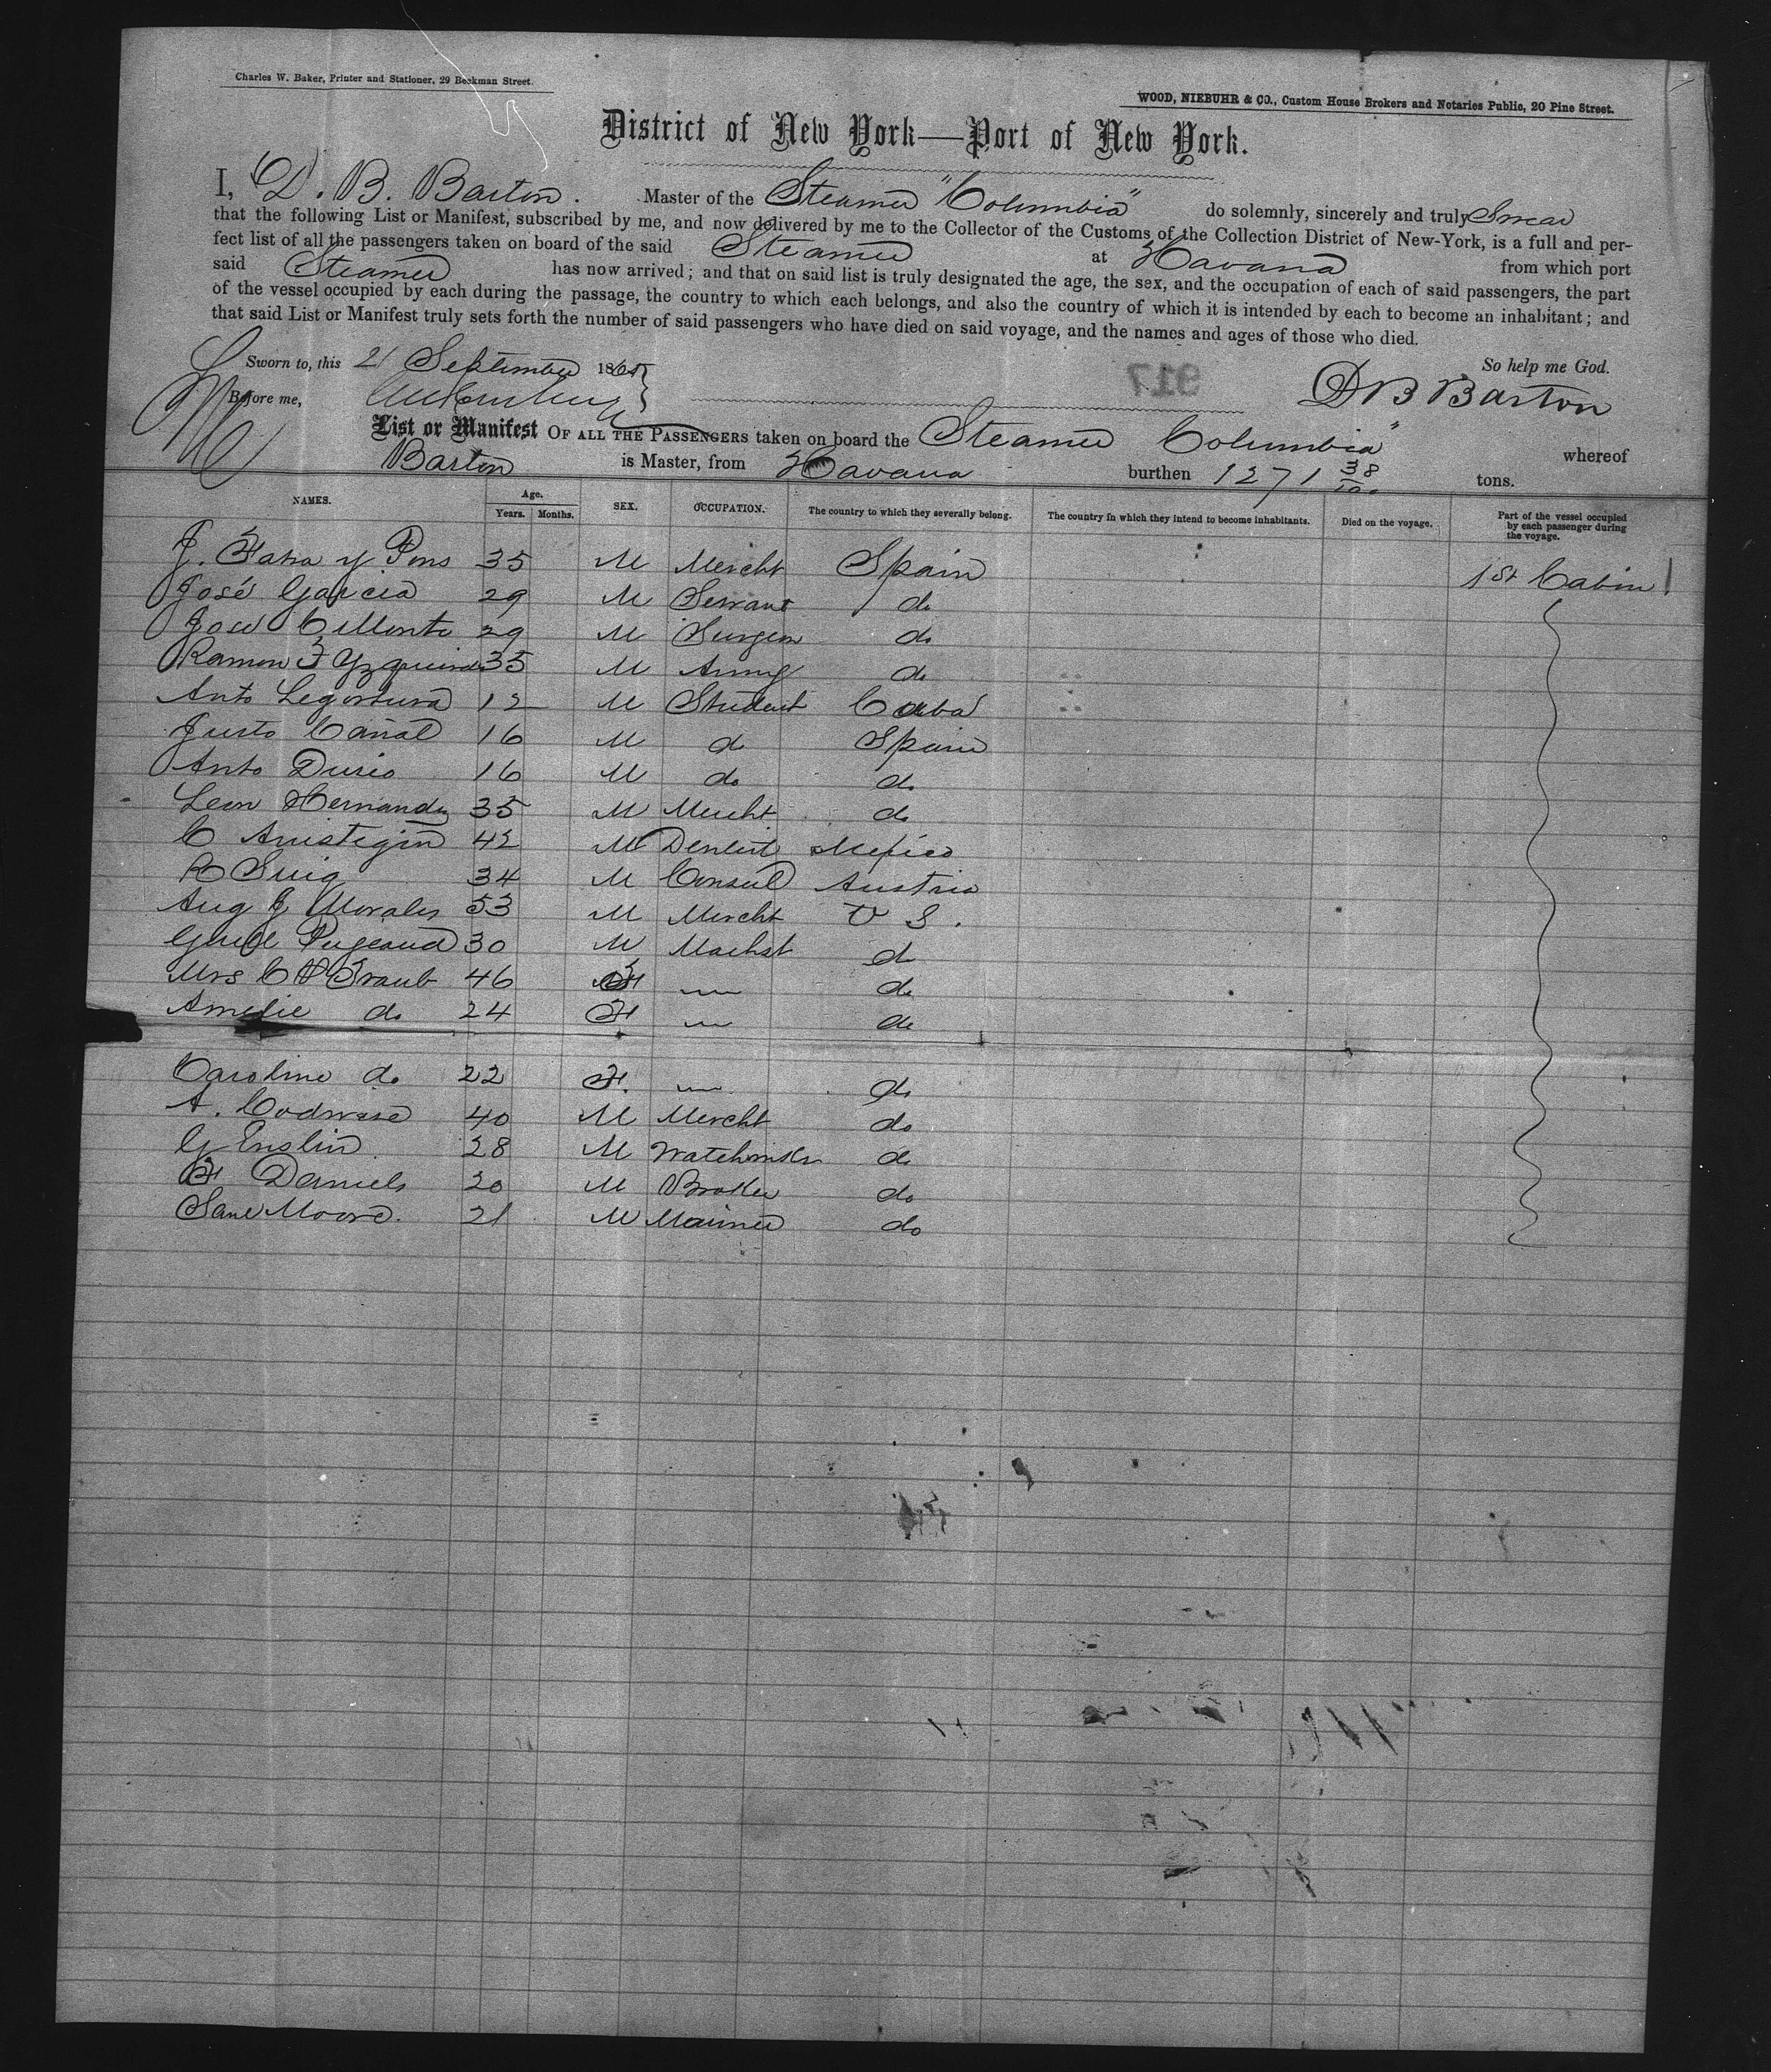 Charles W. Baker, Printer and Stationer, 29 Beekman Street.
WOOD, NIEBUHR & CO., Custom House Brokers and Notaries Public, 20 Pine Street.
District of New York—Port of New York.
I, D. B. Barton. Master of the Steamer "Columbia" do solemnly, sincerely and truly Swear
that the following List or Manifest, subscribed by me, and now delivered by me to the Collector of the Customs of the Collection District of New-York, is a full and per-
fect list of all the passengers taken on board of the said Steamer at Havana from which port
said Steamer has now arrived; and that on said list is truly designated the age, the sex, and the occupation of each of said passengers, the part
of the vessel occupied by each during the passage, the country to which each belongs, and also the country of which it is intended by each to become an inhabitant; and
that said List or Manifest truly sets forth the number of said passengers who have died on said voyage, and the names and ages of those who died.
Sworn to, this 21 September 1865 So help me God.
917
Before me, D B Barton
List or Manifest OF ALL THE PASSENGERS taken on board the Steamer Columbia" whereof
Barton is Master, from Havana burthen 1271 38/100 tons.
NAMES. Age. Years. Months. SEX. OCCUPATION. The country to which they severally belong. The country in which they intend to become inhabitants. Died on the voyage. Part of the vessel occupied by each passenger during the voyage.
J. y Pons 35 M Mercht Spain 1st Cabin
José Garcia 29 M Servant do
José C Monte 29 M Surgeon do
Ramon F 35 M Army do
Anto 12 M Student Cuba
Justo Cañal 16 M do Spain
Anto 16 M do do
Leon Hernandez 35 M Mercht do
C 42 M Dentist Mexico
R 34 M Consul Austria
Aug J Morales 53 M Mercht U S.
Pugeaud 30 M Machst do
Mrs C 46 F — do
Amelie do 24 F — do
Caroline do 22 F. — do
A. Codwise 40 M Mercht do
G Enslin 28 M Watchmkr do
F Daniels 20 M Broker do
Moore. 21 M Mariner do